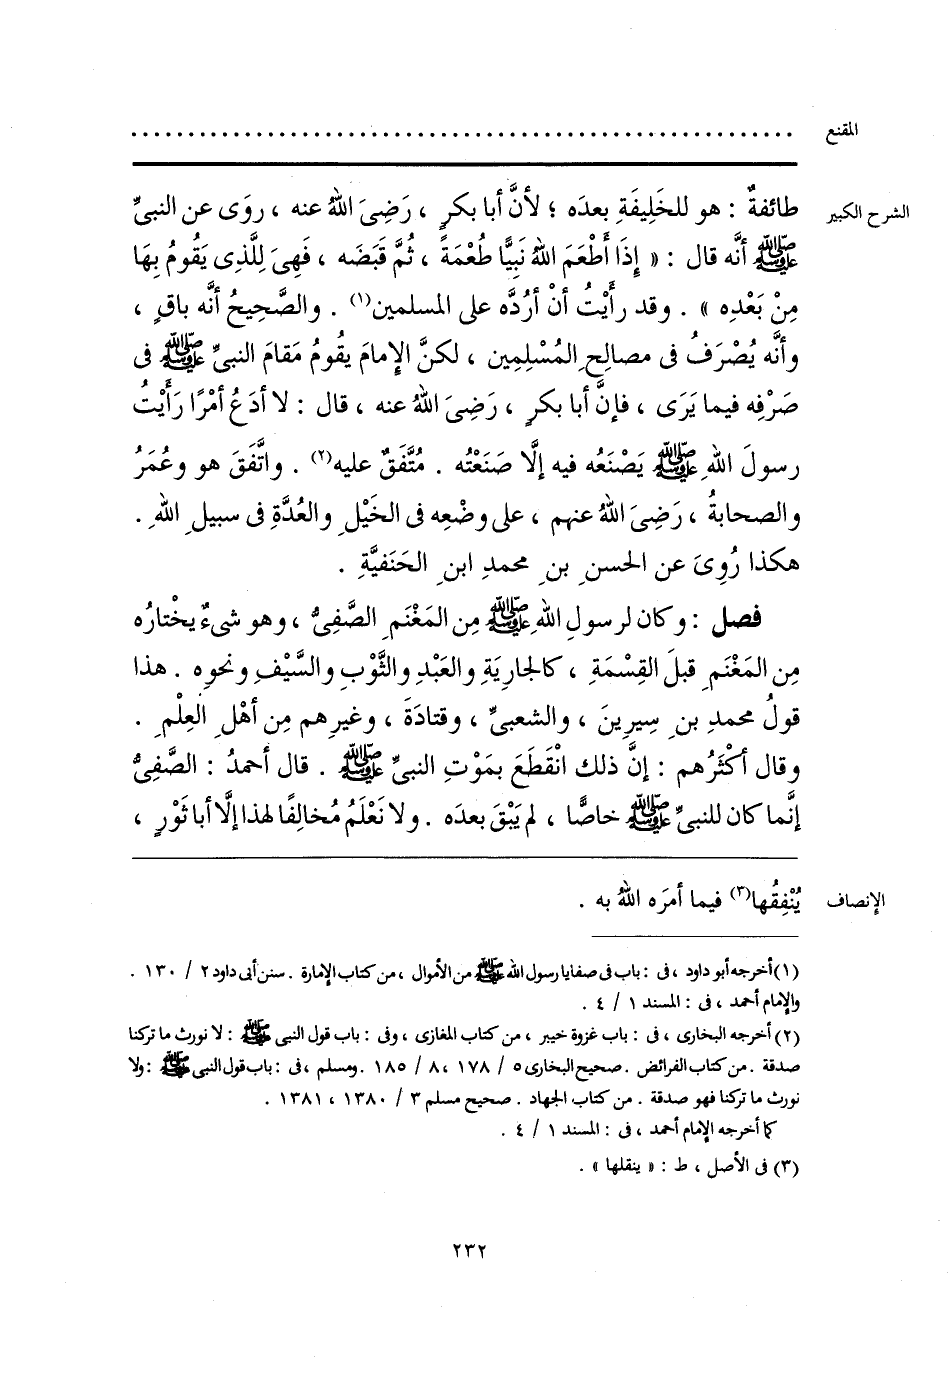 المقنع ........................................................
الشرح الكبير طائفةٌ : هو للخَلِيفَةِ بعدَه ؛ لأنَّ أبا بكرٍ ، رَضِىَ اللهُ عنه ، روَى عن النبىِّ
ﷺ أنَّه قال : « إِذَا أَطْعَمَ اللهُ نَبِيًّا طُعْمَةً ، ثُمَّ قَبَضَه ، فَهِىَ لِلَّذِى يَقُومُ بِهَا
مِنْ بَعْدِه » . وقد رأَيْتُ أنْ أرُدَّه على المسلمين(١) . والصَّحِيحُ أنَّه باقٍ ،
وأنَّه يُصْرَفُ فى مصالحِ المُسْلِمِين ، لكنَّ الإِمامَ يقُومُ مَقامَ النبىِّ ﷺ فى
صَرْفِه فيما يَرَى ، فإنَّ أبا بكرٍ ، رَضِىَ اللهُ عنه ، قال : لا أدَعُ أمْرًا رَأَيْتُ
رسولَ اللهِ ﷺ يَصْنَعُه فيه إلَّا صَنَعْتُه . مُتَّفَقٌ عليه(٢) . واتَّفَقَ هو وعُمَرُ
والصحابةُ ، رَضِىَ اللهُ عنهم ، على وضْعِه فى الخَيْلِ والعُدَّةِ فى سبيلِ اللهِ .
هكذا رُوِىَ عن الحسنِ بنِ محمدِ ابنِ الحَنَفيَّةِ .
فصل : وكان لرسولِ اللهِ ﷺ مِن المَغْنَمِ الصَّفِىُّ ، وهو شىءٌ يخْتارُه
مِن المَغْنَمِ قبلَ القِسْمَةِ ، كالجارِيَةِ والعَبْدِ والثَّوْبِ والسَّيْفِ ونحوِه . هذا
قولُ محمدِ بنِ سِيرِينَ ، والشعبىِّ ، وقتادَةَ ، وغيرِهم مِن أهْلِ العِلْمِ .
وقال أكْثَرُهم : إنَّ ذلك انْقَطَعَ بمَوْتِ النبىِّ ﷺ . قال أحمدُ : الصَّفِىُّ
إنَّما كان للنبىِّ ﷺ خاصًّا ، لم يَبْقَ بعدَه . ولا نَعْلَمُ مُخالِفًا لهذا إلَّا أبا ثَوْرٍ ،
الإنصاف يُنْفِقُها(٣) فيما أمَرَه اللهُ به .
(١) أخرجه أبو داود ، فى : باب فى صفايا رسول الله ﷺ من الأموال ، من كتاب الإمارة . سنن أبى داود ٢ / ١٣٠ .
والإمام أحمد ، فى : المسند ١ / ٤ .
(٢) أخرجه البخارى ، فى : باب غزوة خيبر ، من كتاب المغازى ، وفى : باب قول النبى ﷺ : لا نورث ما تركنا
صدقة . من كتاب الفرائض . صحيح البخارى ٥ / ١٧٨ ، ٨ / ١٨٥ . ومسلم ، فى : باب قول النبى ﷺ : ولا
نورث ما تركنا فهو صدقة . من كتاب الجهاد . صحيح مسلم ٣ / ١٣٨٠ ، ١٣٨١ .
كما أخرجه الإمام أحمد ، فى : المسند ١ / ٤ .
(٣) فى الأصل ، ط : « ينقلها » .
٢٣٢